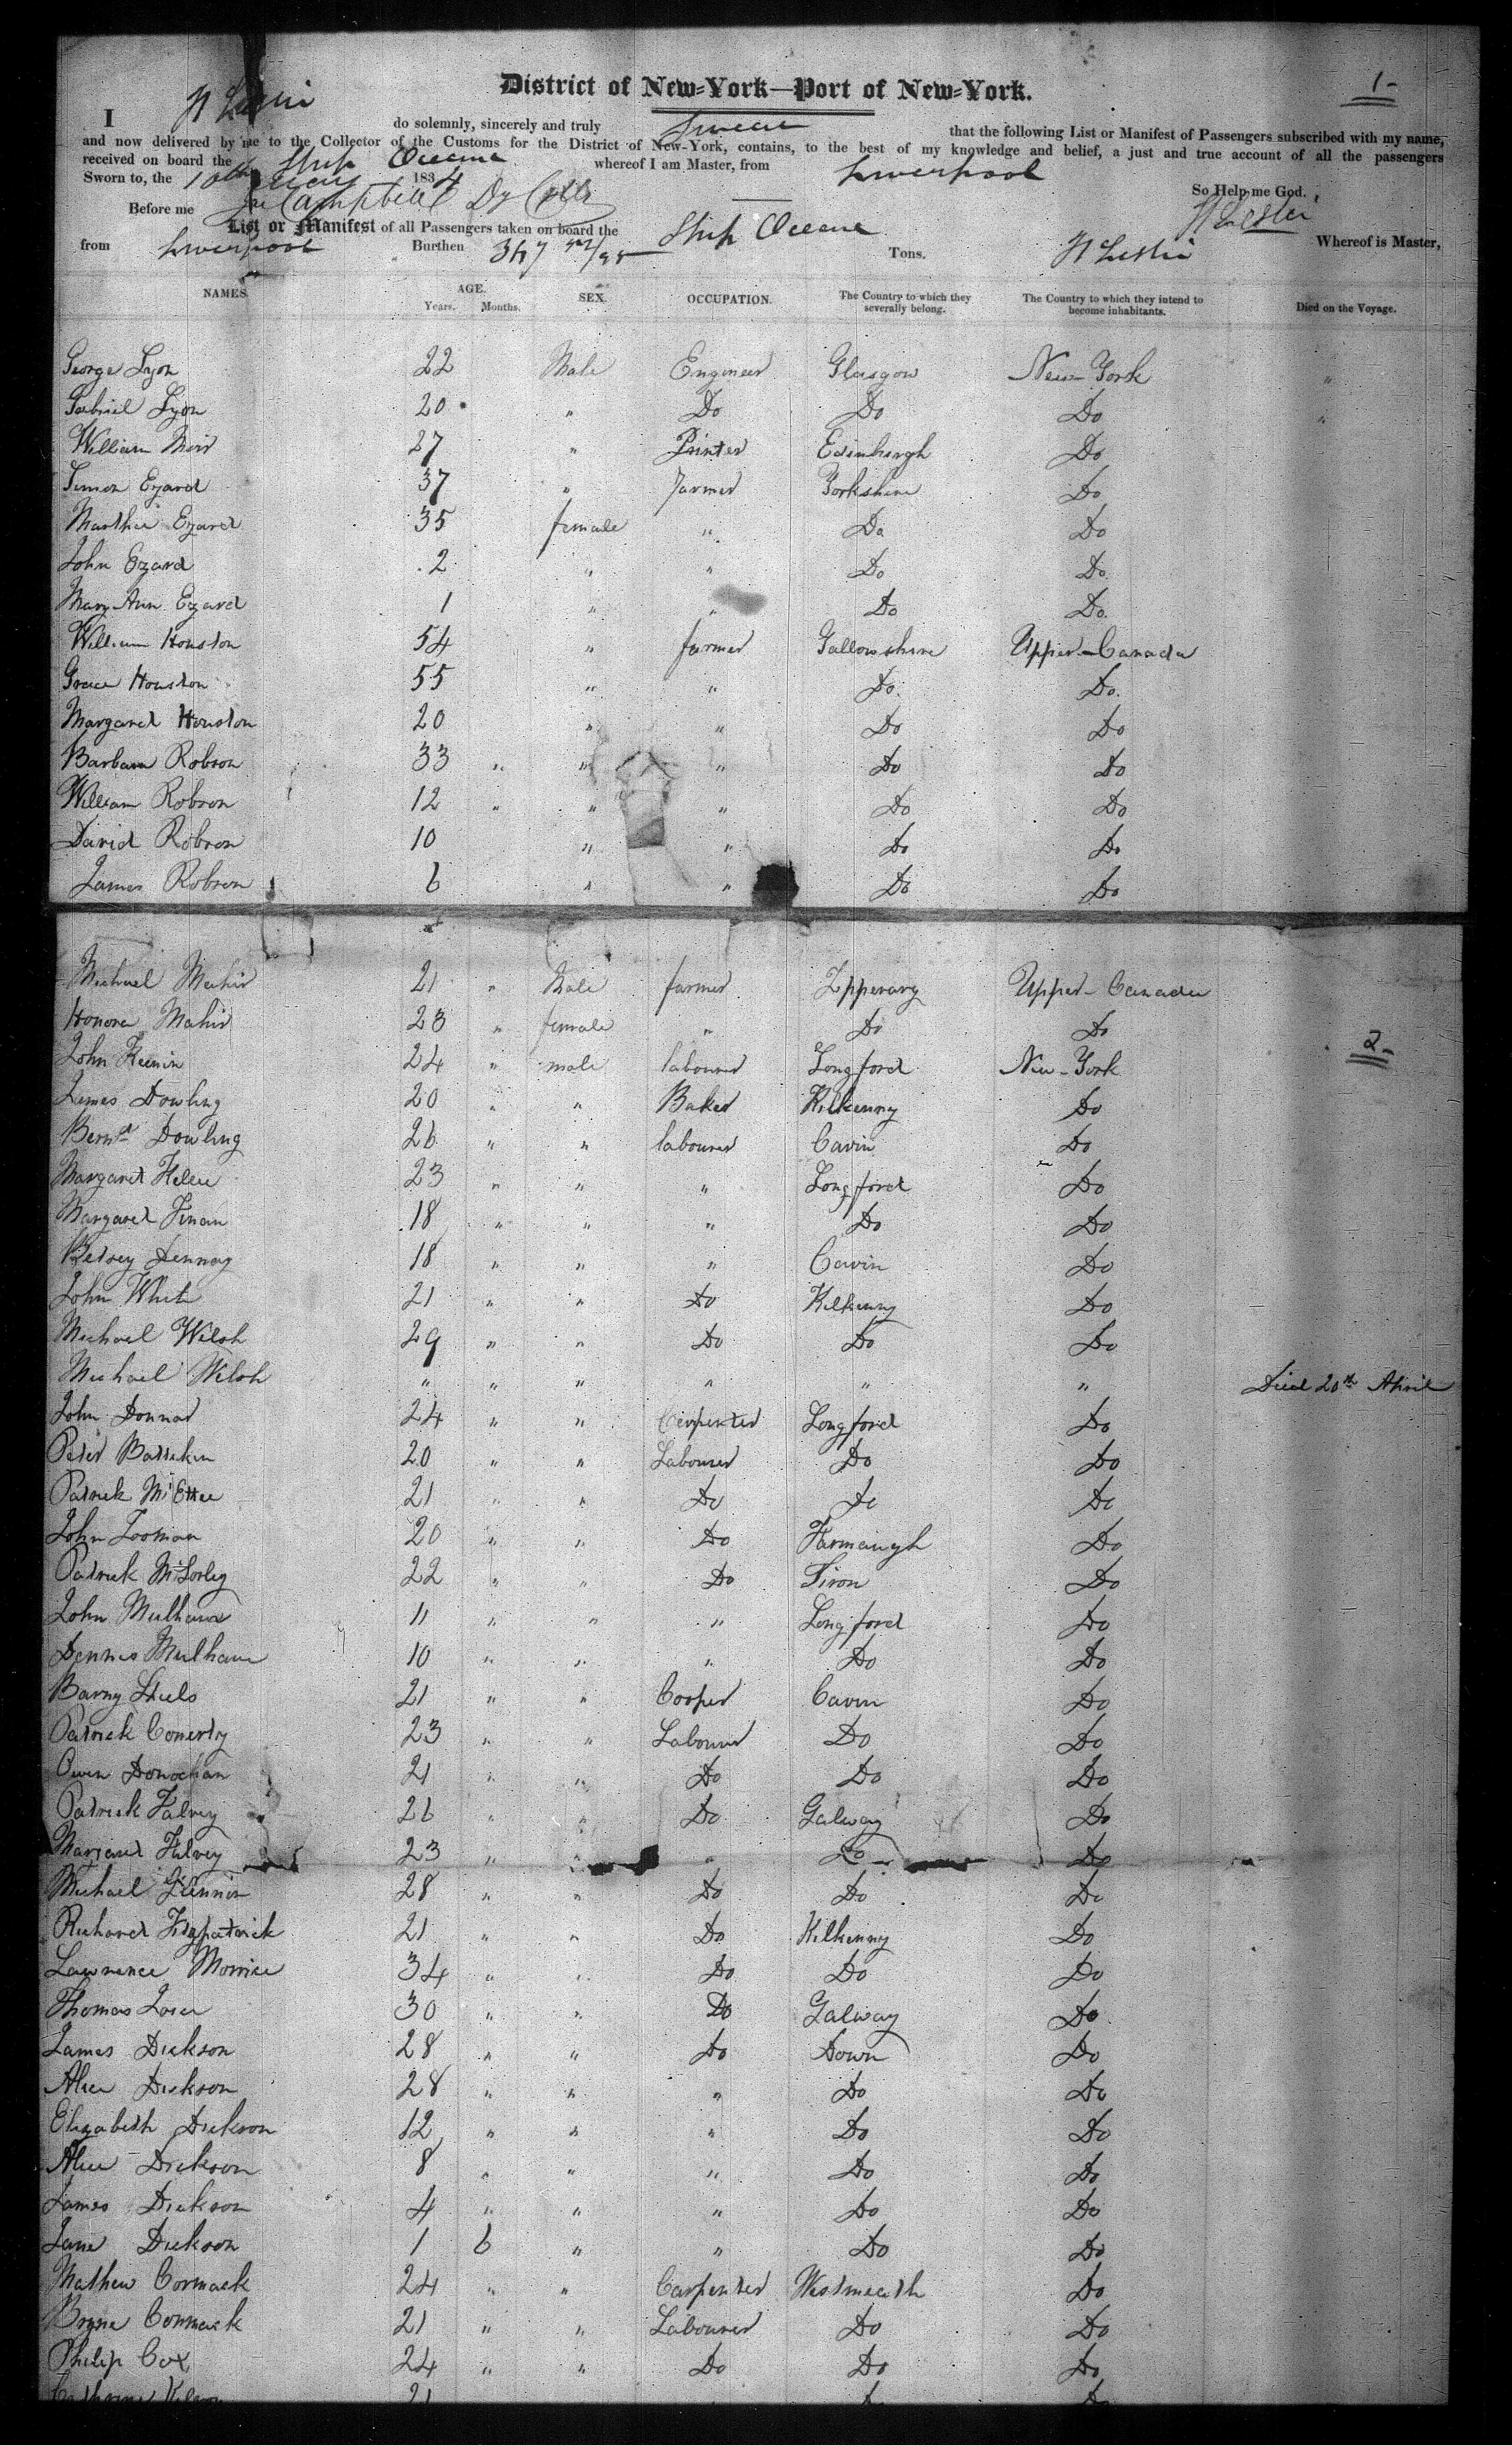 1-
District of New-York—Port of New-York.
I do solemnly, sincerely and truly Swear that the following List or Manifest of Passengers subscribed with my name,
and now delivered by me to the Collector of the Customs for the District of New-York, contains, to the best of my knowledge and belief, a just and true account of all the passengers
received on board the Ship Oceana whereof I am Master, from Liverpool
Sworn to, the 10th May 1834 So Help me God.
Before me Campbell Dy
List or Manifest of all Passengers taken on board the Ship Oceana Whereof is Master,
from Liverpool Burthen Tons.
NAMES. AGE. Years. Months. SEX. OCCUPATION. The Country to which they severally belong. The Country to which they intend to become inhabitants. Died on the Voyage.
George Lyon 22 Male Engineer Glasgow New-York "
Gabriel Lyon 20 " Do Do Do "
William Moir 27 " Printer Edinburgh Do
Simon Ezard 37 " Farmer Yorkshire Do
Martha Ezard 35 female " Do Do
John Ezard 2 " " Do Do
Mary Ann Ezard 1 " " Do Do
William Houston 54 " farmer Galloshire Upper-Canada
Grace Houston 55 " " Do Do
Margaret Houston 20 " " Do Do
Barbara Robson 33 " " " Do Do
William Robson 12 " " " Do Do
David Robson 10 " " Do Do
James Robson 6 " " Do Do
Michael Mahir 21 " Male farmer Tipperary Upper-Canada
Honora Mahir 23 " female " Do Do
2-
John 24 " male labourer Longford New-York
James Dowling 20 " " Baker Kilkenny Do
Bernd Dowling 26 " " labourer Cavin Do
Margaret 23 " " " Longford Do
Margaret Finan 18 " " " Do Do
Betsey Dennay 18 " " " Cavin Do
John White 21 " " Do Kilkenny Do
Michael Welsh 29 " " Do Do Do
Michael Welsh " " " " " " Died 20th April
John Donnar 24 " " Carpenter Longford Do
Peter 20 " " Labourer Do Do
Patrick 21 " " Do Do Do
John Tooman 20 " " Do Farmaugh Do
Patrick McSorley 22 " " Do Tiron Do
John 11 " " " Longford Do
Dennis 10 " " " Do Do
Barny 21 " " Cooper Cavin Do
Patrick Conerty 23 " " Labourer Do Do
Owen Donochan 21 " " Do Do Do
Patrick Falvey 26 " " Do Galway Do
Margaret Falvey 23 " " " Do Do
Michael 28 " " Do Do Do
Richard Fitzpatrick 21 " " Do Kilkenny Do
Lawrence Morrice 34 " " Do Do Do
Thomas 30 " " Do Galway Do
James Dickson 28 " " Do Down Do
Alice Dickson 28 " " " Do Do
Elizabeth Dickson 12 " " " Do Do
Alice Dickson 8 " " " Do Do
James Dickson 4 " " " Do Do
Jane Dickson 1 6 " " Do Do
Mathew Cormack 24 " " Carpenter Westmeath Do
Bryne Cormack 21 " " Labourer Do Do
Philip Cox 24 " " Do Do Do
21 Do